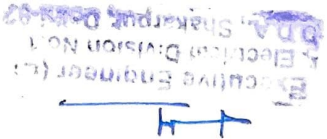 Executive Engineer (E)
Electrical Division No.1
D.D.A. Shakarpur, Delhi-92